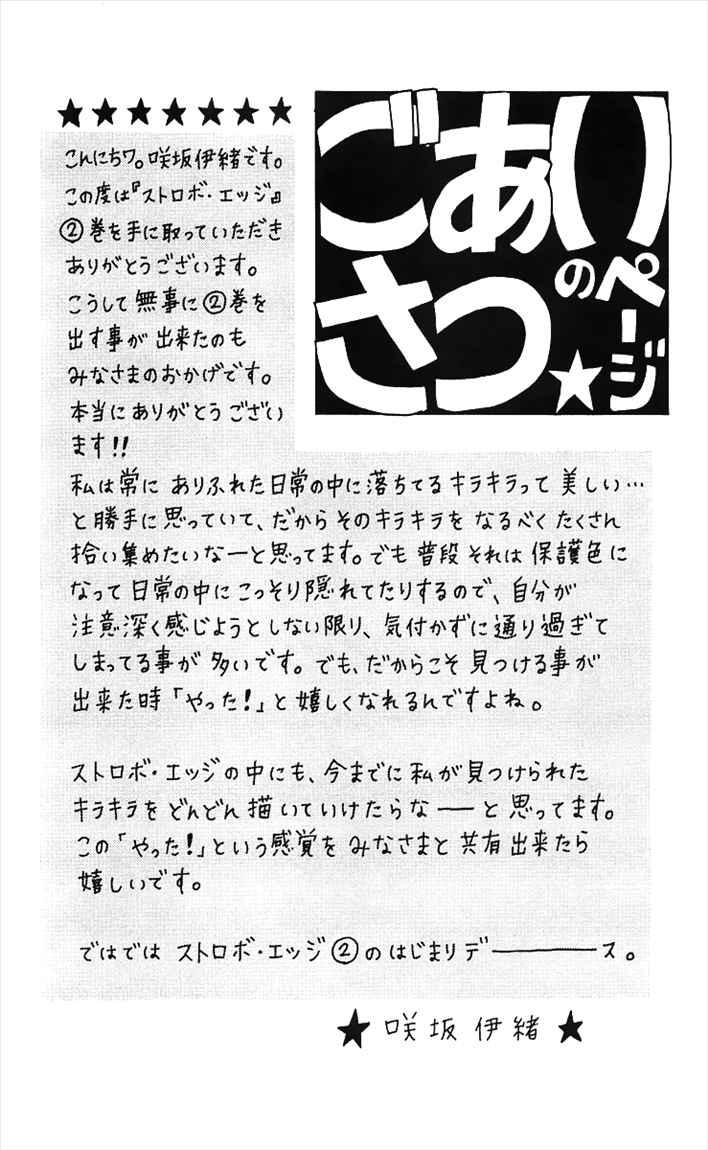 ごあいさつのページ★
★★★★★★★
こんにちワ。咲坂伊緒です。
この度は『ストロボ・エッジ』
②巻を手に取っていただき
ありがとうございます。
こうして無事に②巻を
出す事が出来たのも
みなさまのおかげです。
本当にありがとうござい
ます!!
私は常にありふれた日常の中に落ちてるキラキラって美しい…
と勝手に思っていて、だからそのキラキラをなるべくたくさん
拾い集めたいなーと思ってます。でも普段それは保護色に
なって日常の中にこっそり隠れてたりするので、自分が
注意深く感じようとしない限り、気付かずに通り過ぎて
しまってる事が多いです。でも、だからこそ見つける事が
出来た時「やった!」と嬉しくなれるんですよね。
ストロボ・エッジの中にも、今までに私が見つけられた
キラキラをどんどん描いていけたらな──と思ってます。
この「やった!」という感覚をみなさまと共有出来たら
嬉しいです。
ではではストロボ・エッジ②のはじまりデ────ス。
★咲坂伊緒★